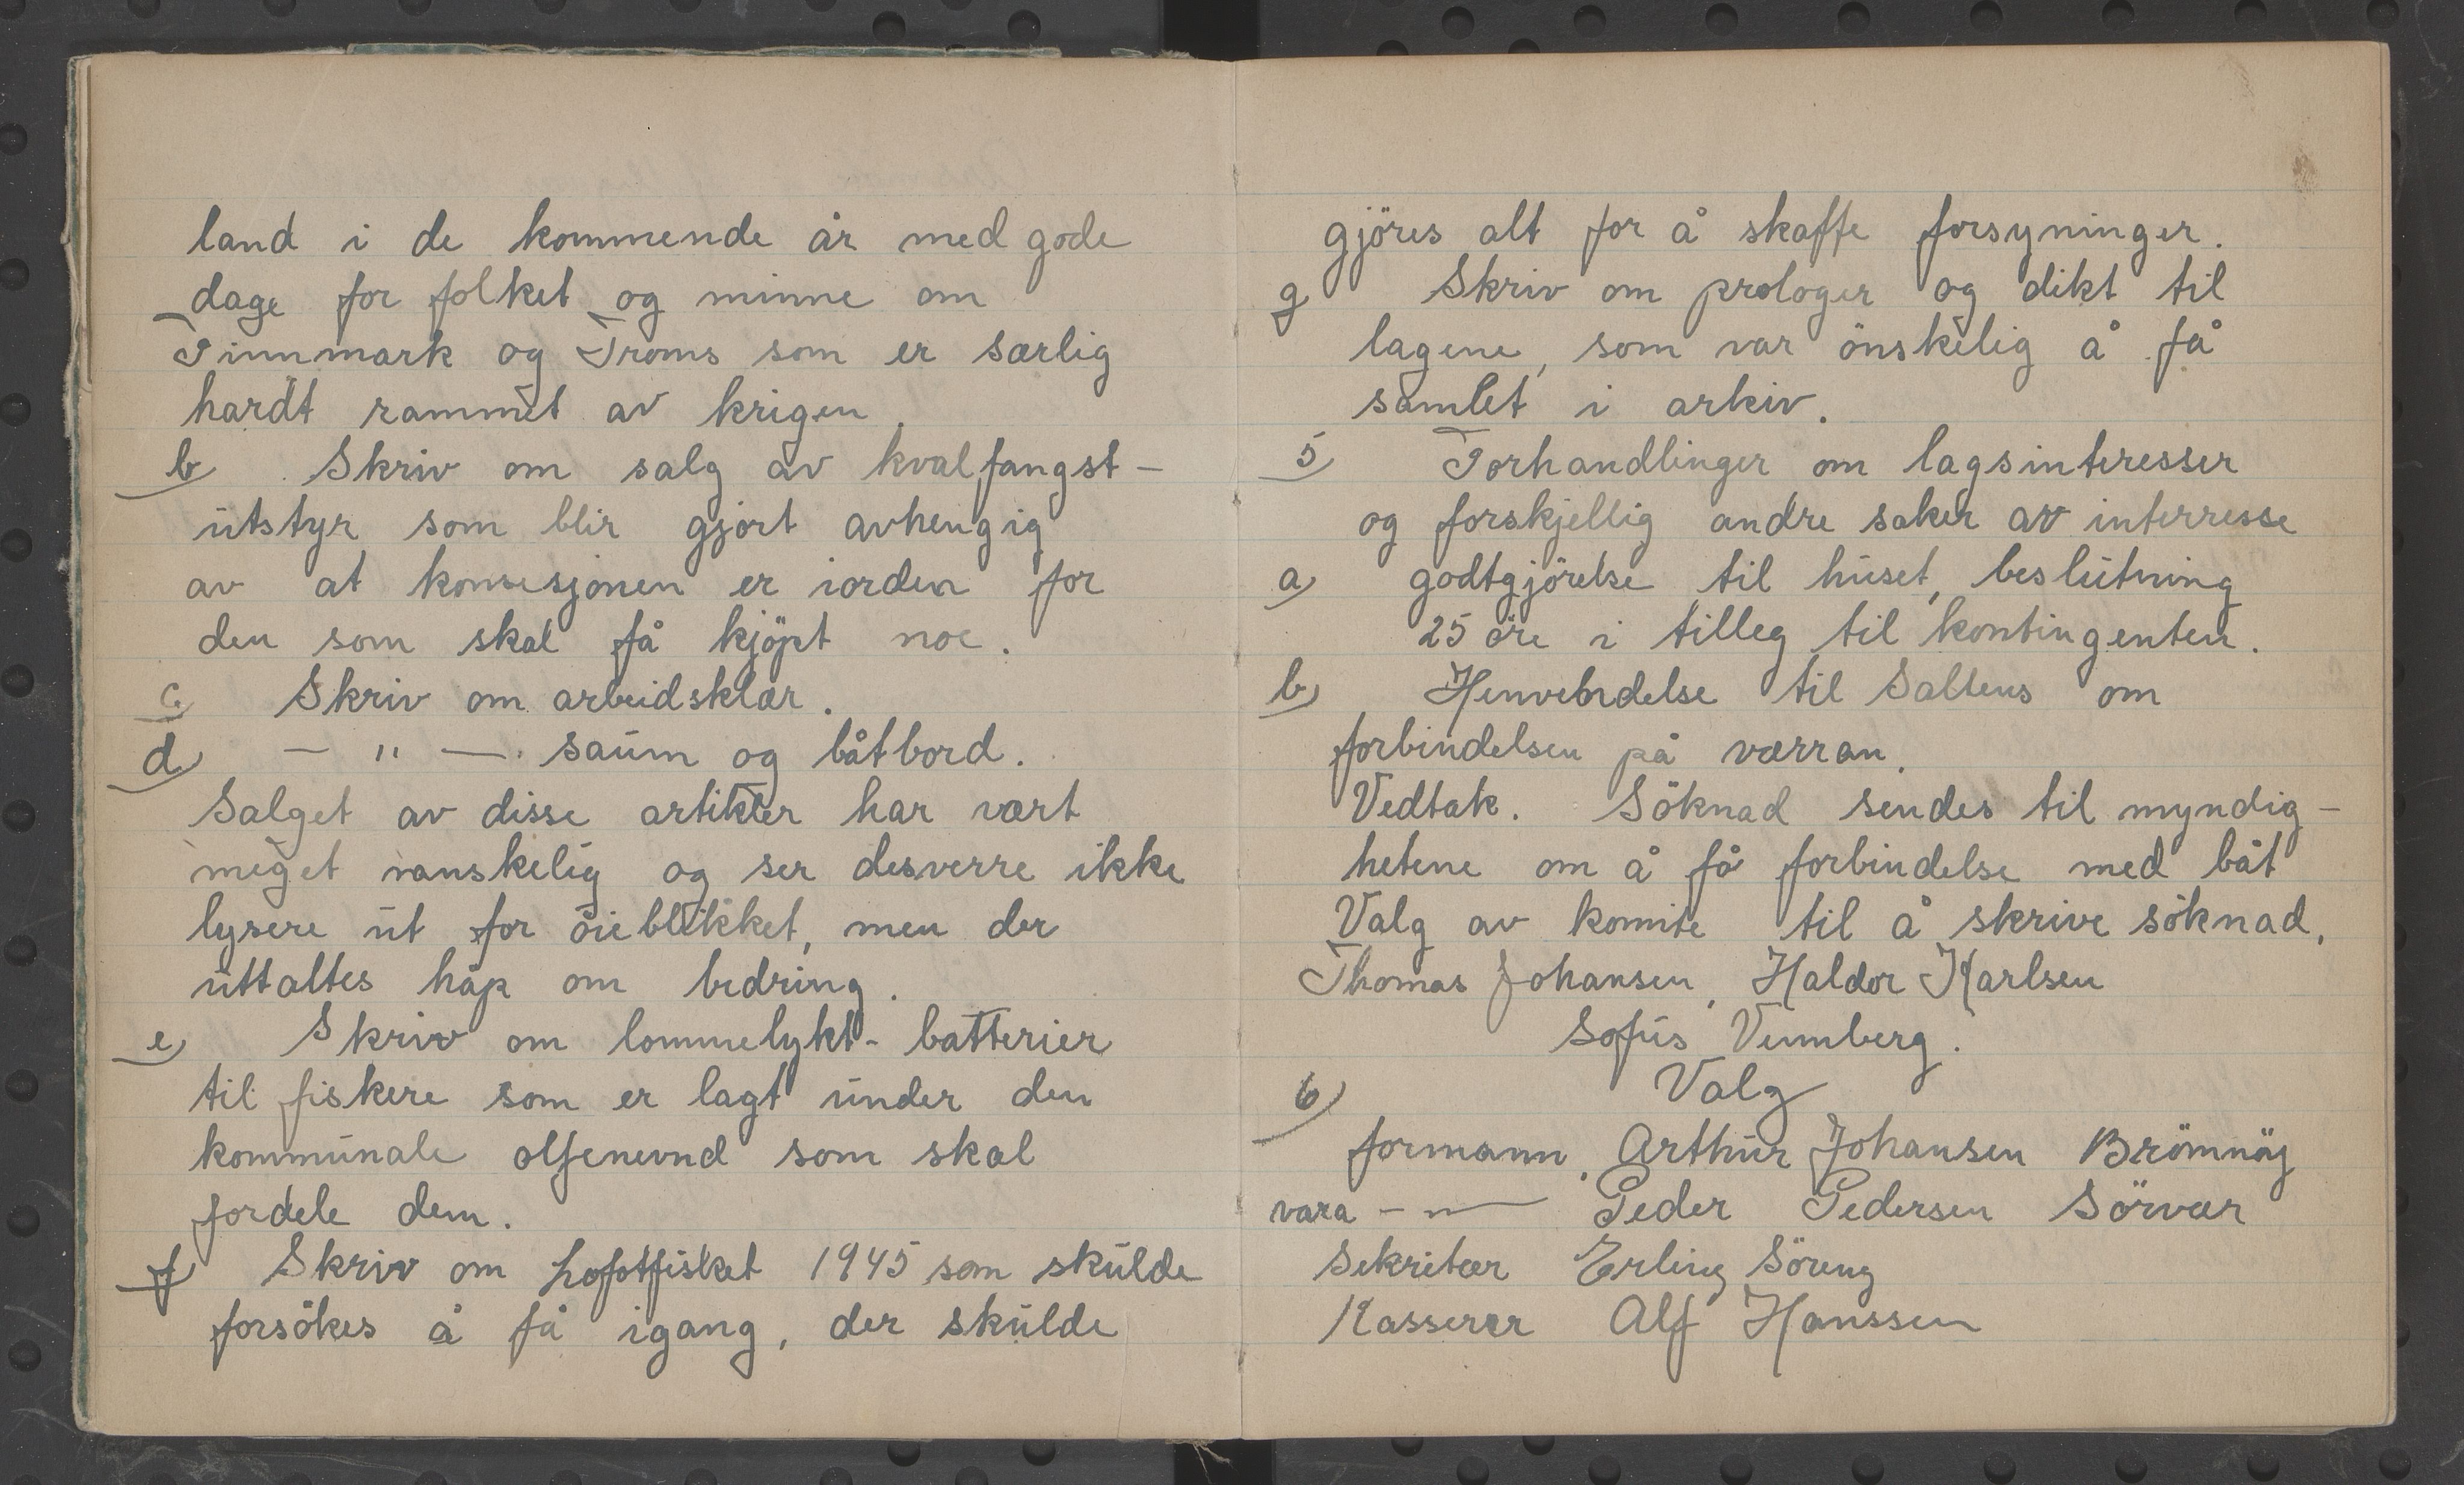 land i de kommende år med gode
dage for folket og minne om
Finnmark og Troms som er særlig
hardt rammet av krigen.
b Skriv om salg av kvalfangst-
utstyr som blir gjort avhengig
av at konsesjonen er iorden for
den som skal få kjöpt noe.
c. Skriv om arbeidsklær.
d. - " - saum og båtbord.
Salget av disse artikler har vært
meget vanskelig og ser desverre ikke
lysere ut for öieblikket, men der
uttaltes håp om bedring.
e Skriv om lommelykt-batterier
til fiskere som er lagt under den
kommunale oljenevnd som skal
fordele dem.
f Skriv om Lofotfisket 1945 som skulde
forsökes å få igang, der skulde
gjöres alt for å skaffe forsyninger.
g Skriv om prologer og dikt til
lagene, som var önskelig å få
samlet i arkiv.
5 Forhandlinger om lagsinteresser
og forskjellig andre saker av interresse
a godtgjörelse til huset, beslutning
25 öre i tilleg til kontingenten.
b Henvendelse til Saltens om
forbindelsen på værran.
Vedtak. Söknad sendes til myndig-
hetene om å få forbindelse med båt
Valg av komite til å skrive söknad,
Thomas Johansen, Haldor Karlsen
Sofus Vennberg.
6 Valg
formann, Arthur Johansen Brömnöy
vara - " - Peder Pedersen Sörvær
Sekretær Erling Söreng
Kasserer Alf Hanssen